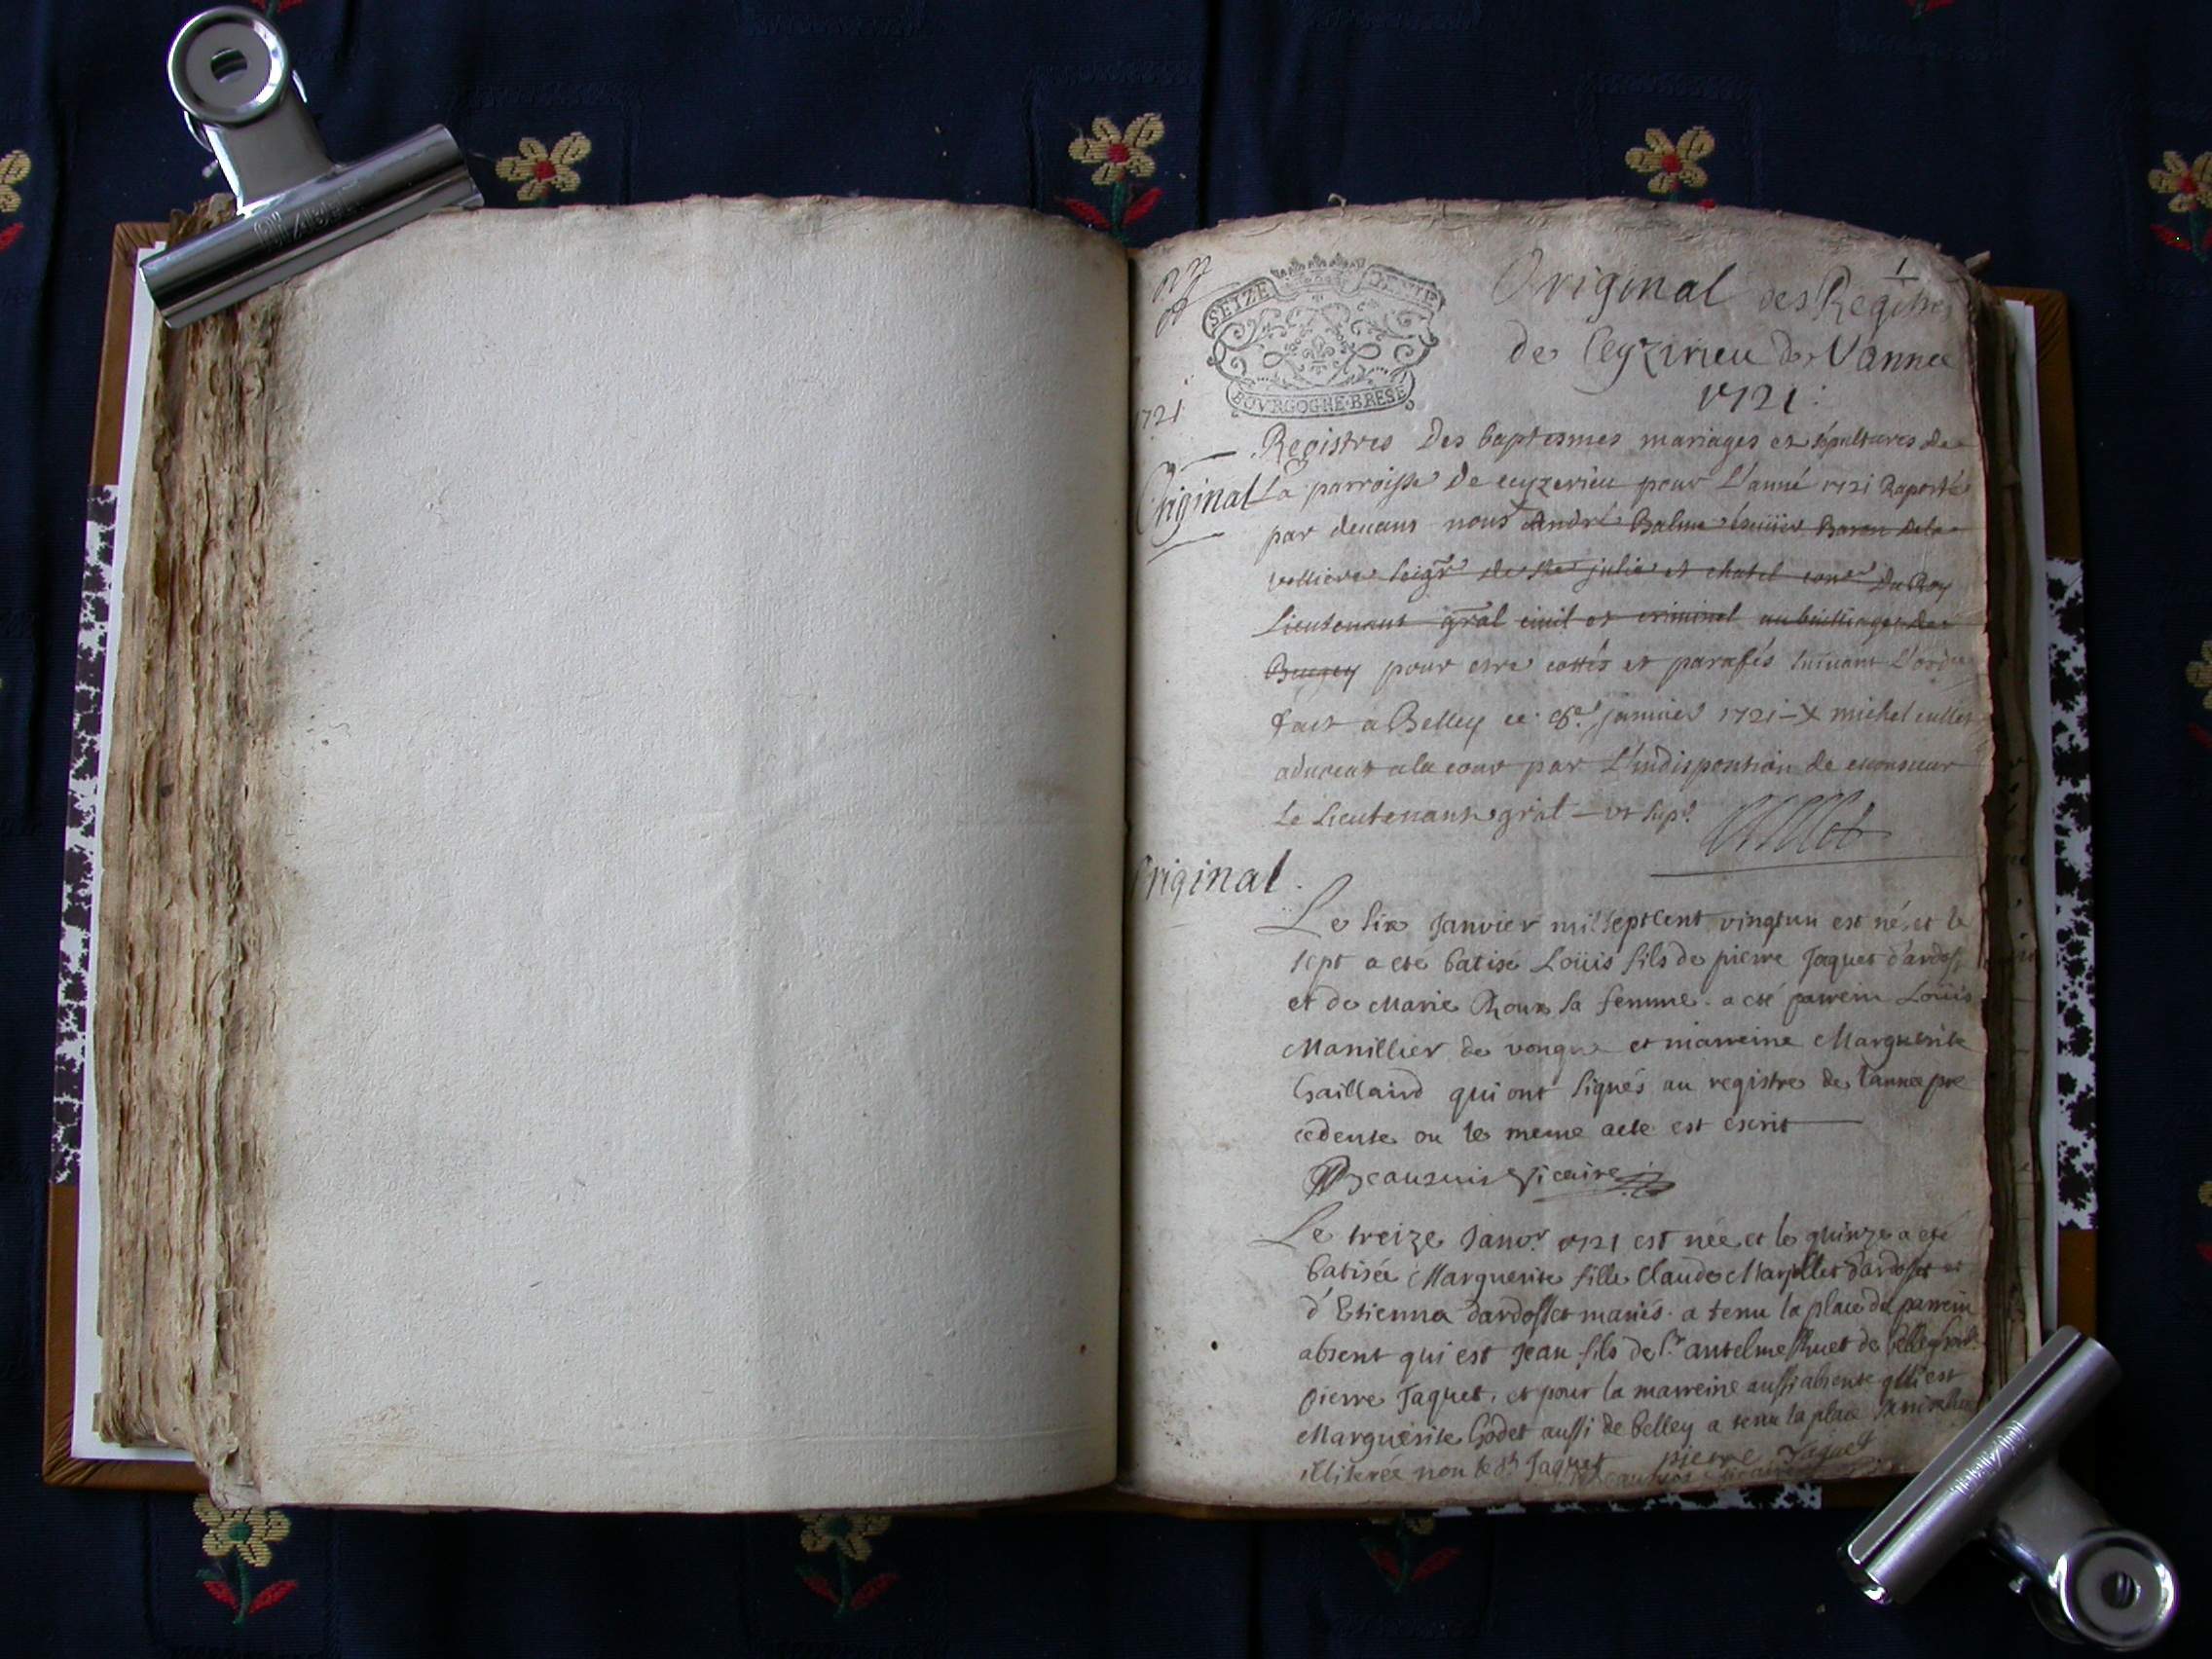 1
SEIZE DENIE
BOVRGOGNE·BRESE
Original des Registres
de Ceyzirieu de Vannee
1721:
1721
Original
Registres Des baptesmes mariages et sépultures de
La parroisse De ceyzerieu pour L'anné 1721 Raporté
par deuans nous André Balme Baron dela
velliere seigr de ste julie et chatel coner Du Roy
Lieutenant gral ciuil et criminel au bailliage de
Bugey pour etre cottés et parafés suiuant L'ordre
fait a Belley ce janvier 1721 X michel cullet
aduocat a la cour par L'indisposition de monsieur
Le Lieutenant gral – ut sup.
Cullet
Original
Le six Janvier mil septcent vingtun est né et le
sept a eté batisé Loüis fils de pierre Jaquet d'ardoss
et de Marie Roux sa femme. a eté parrein Loüis
Manillier de vongne et marreine Marguerite
Gaillard qui ont signés au registre de lannee pre
cedente ou le meme acte est escrit
Vicaire
Le treize Janvr. 1721 est née et le quinze a eté
batisée Marguerite fille Claude dardosset et
d'Etienna dardosset mariés. a tenu la place du parrein
absent qui est Jean fils de Sr. antelme huet de
pierre Jaquet, et pour la marreine aussi absente qui est
Marguerite Godet aussi de belley a tenu la place
illiterée non le dt Jaquet pierre Jaquet